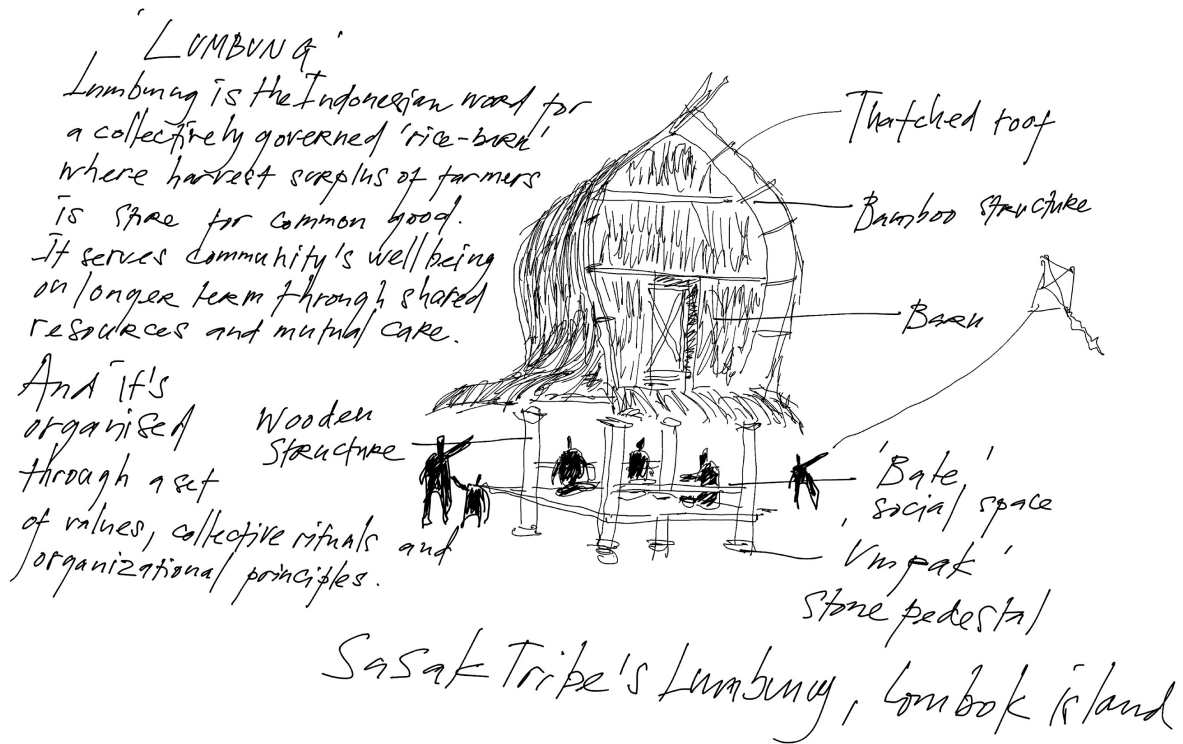 'LUMBUNG'
Lumbung is the Indonesian word for
a collectively governed 'rice-barn'
where harvest surplus of farmers
is store for common good.
It serves community's wellbeing
on longer term through shared
resources and mutual care.
And it's
organised
through a set
of values, collective rituals and
organizational principles.
Thatched roof
Bamboo structure
Barn
Wooden
Structure
'Bale'
social space
'Umpak'
Stone pedestal
Sasak Tribe's Lumbung, Lombok island